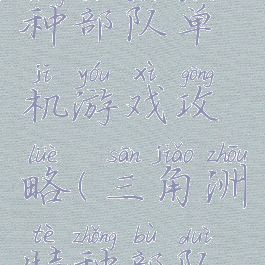 种部队单
jī yóu xì gōng
机游戏攻
lüè sān jiǎo zhōu
略(三角洲
tè zhǒng bù duì
特种部队